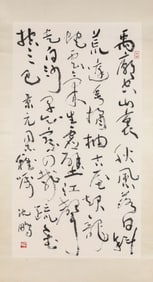 禹廟空山裏秋風落日斜
荒庭垂橘柚古屋畫龍
蛇雲氣生虛壁江聲
走白沙早知乘四載疏鑿
控三巴 同志雅
沈鵬